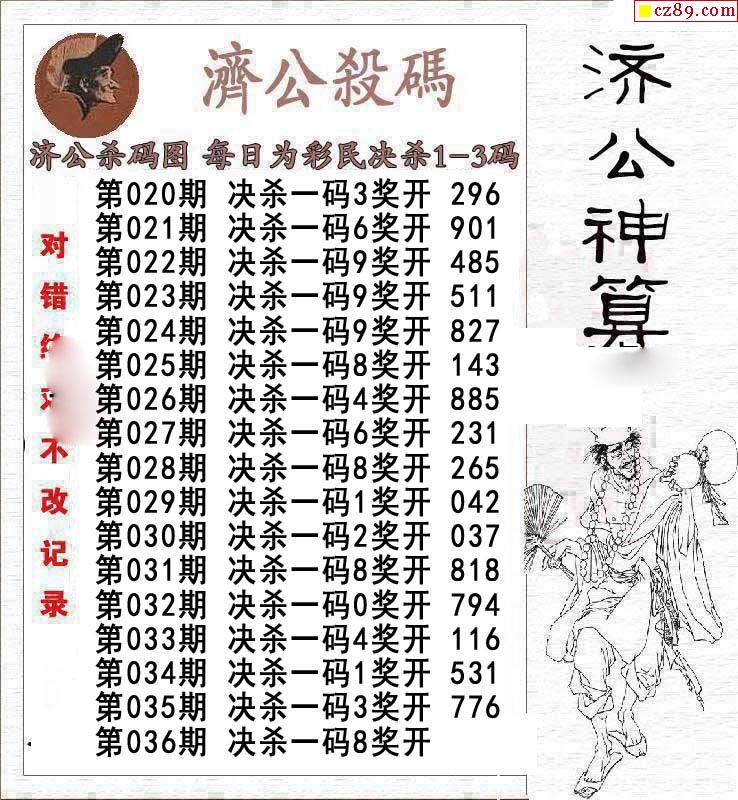 cz89.com
濟公殺碼
济公杀码图 每日为彩民决杀1-3码
第020期 决杀一码3奖开 296
第021期 决杀一码6奖开 901
第022期 决杀一码9奖开 485
第023期 决杀一码9奖开 511
第024期 决杀一码9奖开 827
第025期 决杀一码8奖开 143
第026期 决杀一码4奖开 885
第027期 决杀一码6奖开 231
第028期 决杀一码8奖开 265
第029期 决杀一码1奖开 042
第030期 决杀一码2奖开 037
第031期 决杀一码8奖开 818
第032期 决杀一码0奖开 794
第033期 决杀一码4奖开 116
第034期 决杀一码1奖开 531
第035期 决杀一码3奖开 776
第036期 决杀一码8奖开
对错不改记录
济公神算